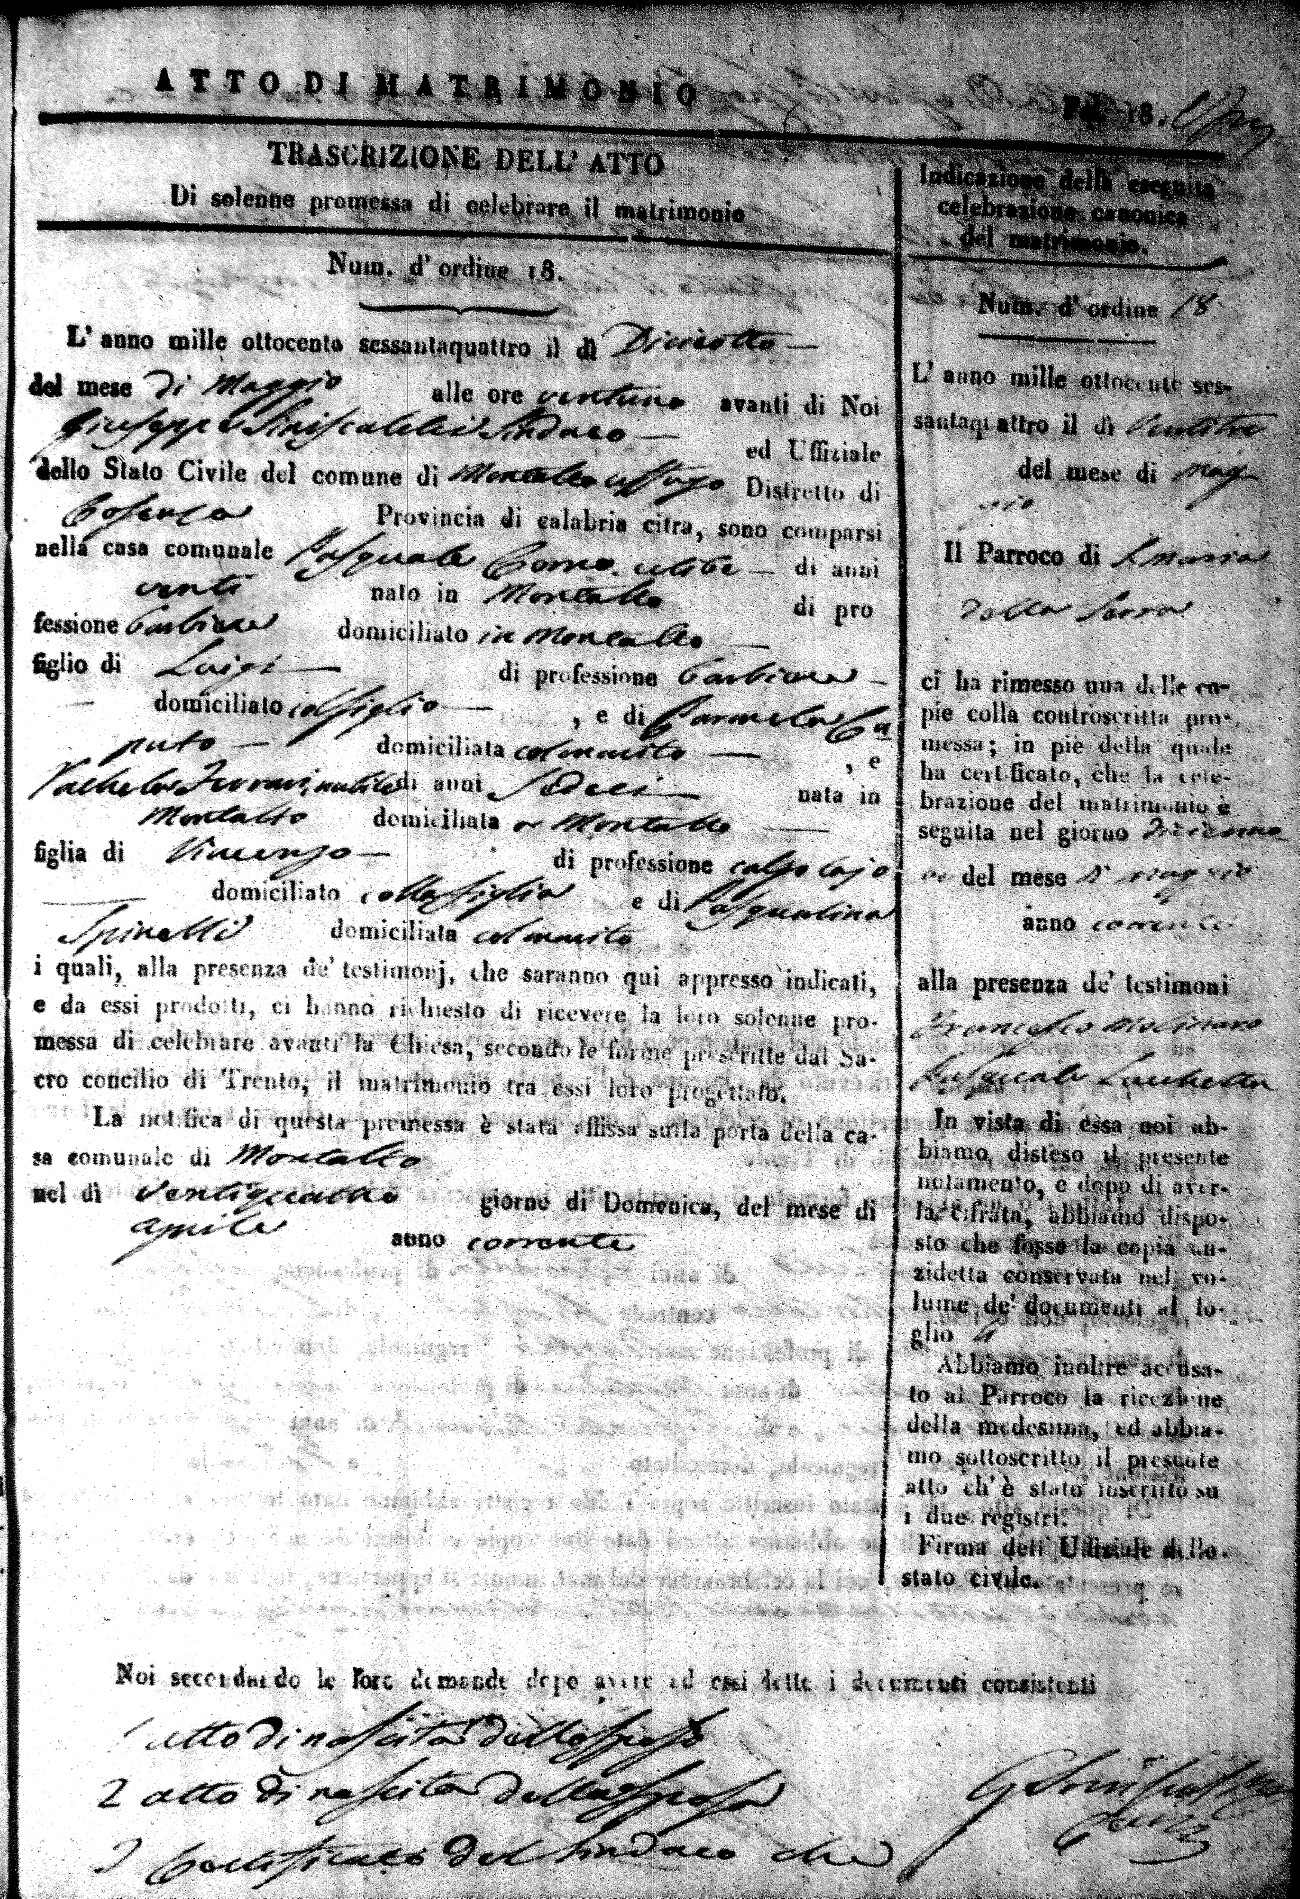 ATTO DI MATRIMONIO
Fol. 18.
TRASCRIZIONE DELL' ATTO
Di solenne promessa di celebrare il matrimonio
Num. d' ordine 18.
L' anno mille ottocento sessantaquattro il dì Diciotto
del mese di Maggio alle ore ventuno avanti di Noi
Giuseppe Siniscalchi Sindaco ed Uffiziale
dello Stato Civile del comune di Montalto uffugo Distretto di
Cosenza Provincia di calabria citra, sono comparsi
nella casa comunale Pasquale celibe di anni
venti nato in Montalto di pro
fessione Barbiere domiciliato in Montalto
figlio di Luigi di professione Barbiere
domiciliato col figlio , e di Carmela Ca
puto domiciliata col marito , e
Rachela nubile di anni Sedeci nata in
Montalto domiciliata in Montalto
figlia di Vincenzo di professione calzolajo
domiciliato colla figlia e di Pasqualina
Spinelli domiciliata col marito
i quali, alla presenza de' testimonj, che saranno qui appresso indicati,
e da essi prodotti, ci hanno richiesto di ricevere la loro solenne pro-
messa di celebrare avanti la Chiesa, secondo le forme prescritte dal Sa-
cro concilio di Trento, il matrimonio tra essi loro progettato.
La notifica di questa premessa è stata affissa sulla porta della ca-
sa comunale di Montalto
nel dì ventiquattro giorno di Domenica, del mese di
aprile anno corrente
Indicazione della eseguita
celebrazione canonica
del matrimonio.
Num. d' ordine 18
L' anno mille ottocento ses-
santaquattro il dì Ventitre
del mese di Mag
gio
Il Parroco di S. Maria
della Serra
ci ha rimesso una delle co-
pie colla controscritta pro-
messa; in piè della quale
ha certificato, che la cele-
brazione del matrimonio è
seguita nel giorno Dicianno
ve del mese di maggio
anno corrente
alla presenza de' testimoni
Francesco Molinaro
Pasquale Lacchetta
In vista di essa noi ab-
biamo disteso il presente
notamento, e dopo di aver-
la cifrata, abbiamo dispo-
sto che fosse la copia an-
zidetta conservata nel vo-
lume de' documenti al fo-
glio 4
Abbiamo inoltre accusa-
to al Parroco la ricezione
della medesima, ed abbia-
mo sottoscritto il presente
atto ch' è stato inscritto su
i due registri.
Firma dell' Uffiziale dello
stato civile.
Noi secondando le loro demande dopo avere ad essi lette i documenti consistenti
1 atto di nascita dello sposo
2 atto di nascita della sposa
3 Certificato del Sindaco che